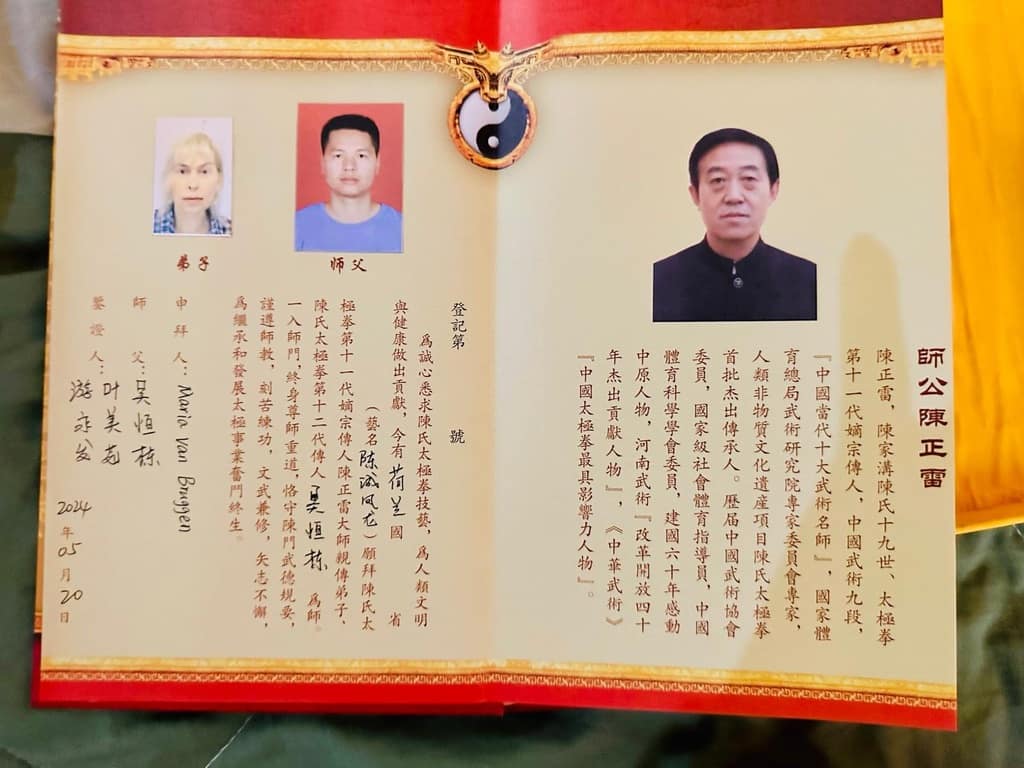 師公陳正雷
陳正雷，陳家溝陳氏十九世、太極拳
第十一代嫡宗傳人，中國武術九段，
『中國當代十大武術名師』，國家體
育總局武術研究院專家委員會專家，
人類非物質文化遺産項目陳氏太極拳
首批杰出傳承人。歷届中國武術協會
委員，國家級社會體育指導員，中國
體育科學學會委員，建國六十年感動
中原人物，河南武術『改革開放四十
年杰出貢獻人物』，《中華武術》
『中國太極拳最具影響力人物』。
师父
弟子
登記第 號
爲誠心悉求陳氏太極拳技藝，爲人類文明
與健康做出貢獻，今有荷兰國 省
（藝名陈凤龙）願拜陳氏太
極拳第十一代嫡宗傳人陳正雷大師親傳弟子、
陳氏太極拳第十二代傳人吴恒栋爲師。
一入師門，終身尊師重道，恪守陳門武德規要，
謹遵師教，刻苦練功，文武兼修，矢志不懈，
爲繼承和發展太極事業奮鬥終生。
申拜人：Maria Van Bruggen
師父：吴恒栋
鑒證人：叶美
游
2024年05月20日